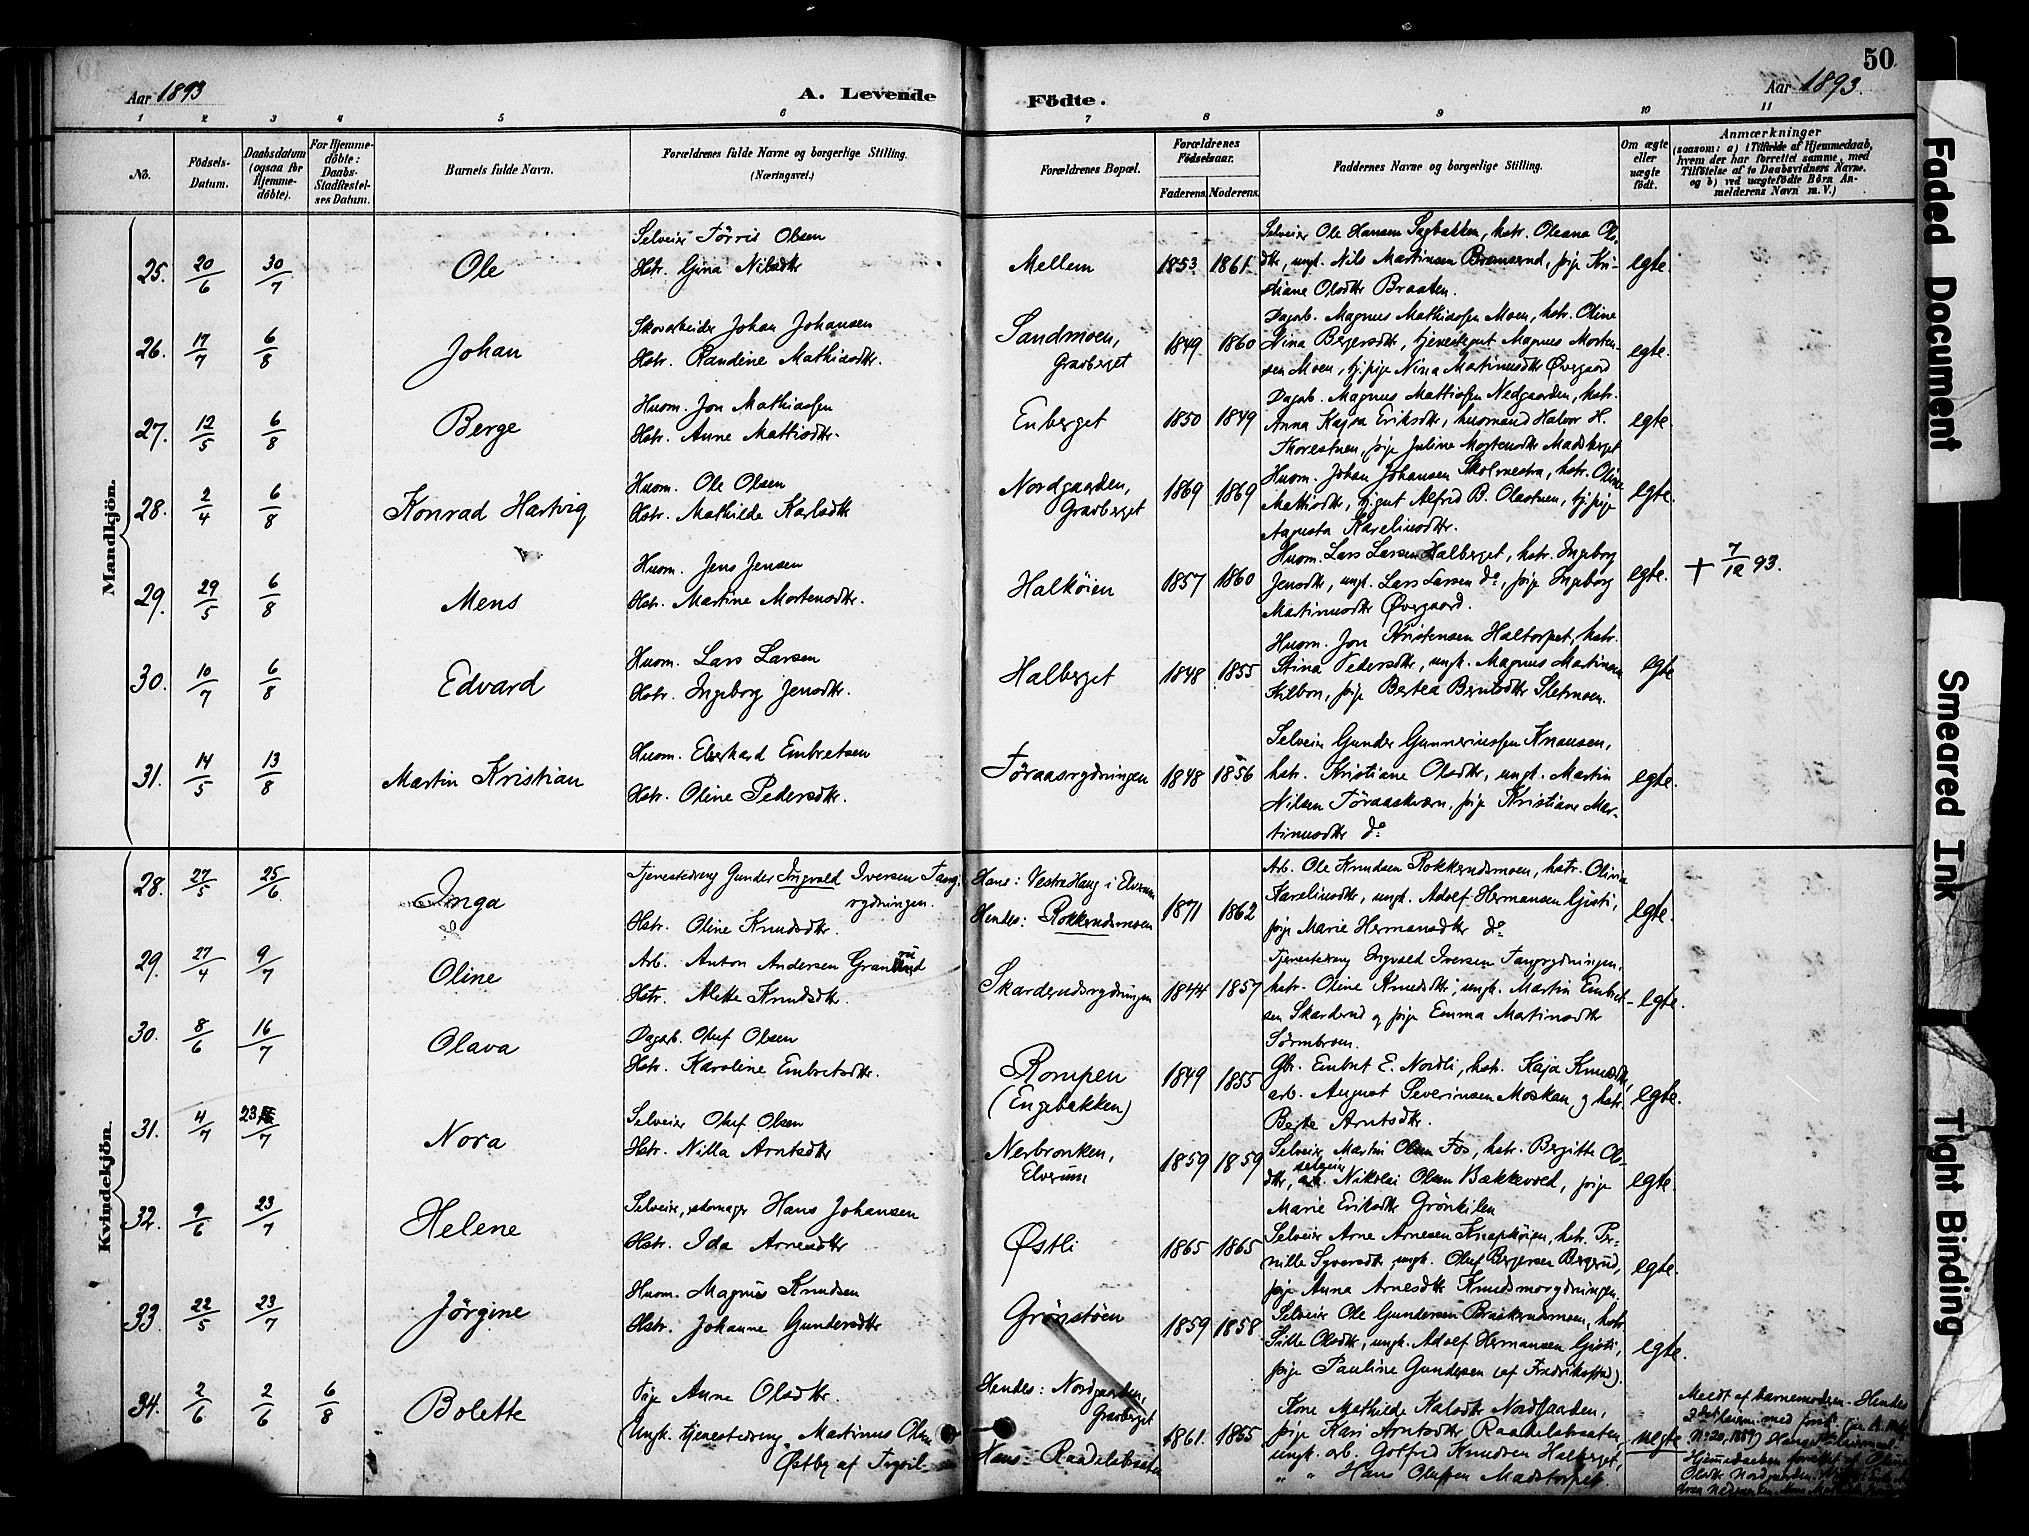 50
Aar 1893
A. Levende
Födte.
Aar 1893.
1 2 3 4 5 6 7 8 9 10 11
No.
Födsels-
Datum.
Daabsdatum
(ogsaa for
Hjemme-
döbte).
For Hjemme-
döbte:
Daabs-
Stadfæstel-
ses Datum.
Barnets fulde Navn.
Forældrenes fulde Navne og borgerlige Stilling.
(Næringsvei.)
Forældrenes Bopæl.
Forældrenes
Födselsaar.
Faderens. Moderens.
Faddernes Navne og borgerlige Stilling.
Om ægte
eller
uægte
födt.
Anmærkninger
(saasom: a) i Tilfælde af Hjemmedaab,
hvem der har forrettet samme, med
Tilföielse af to Daabsvidners Navne.
og b) ved uægtefödte Börn An-
melderens Navn m. V.)
Mandkjön.
25. 20/6 30/7 Ole
Selveier Törris Olsen
Hstr. Gina Nilsdtr
Mellem 1853 1861.
Selveier Ole Hansen Sagbakken, hstr. Oleana Ols-
dtr, ungk. Nils Martinsen, pige Kri-
stiane Olsdtr Braaten.
egte.
26. 17/7 6/8 Johan
Skovarbeider Johan Johansen
Hstr. Randine Mathiasdtr.
Sandmoen,
Gravberget
1849 1860
Dagarb. Magnus Mathiassen Moen, hstr. Oline
Nina Bergersdtr, tjenestegut Magnus Morten-
sen Moen, tj.pige Nina Martinusdtr Øvergaard
egte.
27. 12/5 6/8 Berge
Husm. Jon Mathiassen
Hstr. Anne Mattisdtr.
Enberget 1850 1849
Dagarb. Magnus Mattissen Nedgaarden, hstr.
Anna Kajsa Eriksdtr, husmand Halvor H.
pige Juline Mortensdtr Madsberget
egte.
28. 2/4 6/8 Konrad Hartvig
Husm. Ole Olsen
Hstr. Mathilde Karlsdtr
Nordgaarden,
Gravberget
1869 1869
Husm. Johan Johansen, hstr. Oline
Mattisdtr, tj.gut Alfred B. Olastuen, tj.pige
Augusta Karelinusdtr.
egte.
29. 29/5 6/8 Mens
Husm. Jens Jensen
Hstr. Martine Mortensdtr.
Halköien 1857 1860
Husm. Lars Larsen Halberget, hstr. Ingeborg
Jensdtr, ungk. Lars Larsen do, pige Ingeborg
Martinusdtr Øvergaard.
egte. † 7/12 93.
30. 10/7 6/8 Edvard
Husm. Lars Larsen
Hstr. Ingeborg Jensdtr.
Halberget 1848 1855
Husm. Jon Kristensen Haltorpet, hstr.
Stina Pedersdtr, ungk. Magnus Martinsen
Kilbon, pige Bertea Berntsdtr Sletmoen.
egte
31. 14/5 13/8 Martin Kristian
Husm. Eberhard Embretsen
Hstr. Oline Pedersdtr.
Föraasrydningen 1848 1856
Selveier Gunder Gunneriussen Knausen,
hstr. Kristiane Olsdtr, ungk. Martin
Nilsen Föraaskværn, pige Kristiane Mar-
tinusdtr do
egte.
Kvindekjön.
28. 27/5 25/6 Inga
Tjenestedreng Gunder Ingvald Iversen Tang-
rydningen.
Hstr. Oline Knudsdtr.
Hans: Vestre Haug i Elverum
Hendes: Rokkerudsmoen
1871 1862
Arb. Ole Knudsen Rokkerudsmoen, hstr. Olivia
Karelinusdtr, ungk. Adolf Hermansen Gjesti,
pige Marie Hermansdtr do
egte.
29. 27/4 9/7 Oline
Arb. Anton Andersen
Hstr. Alette Knudsdtr.
Skarderudsrydningen 1844 1857
Tjenestedreng Ingvald Iversen Tangrydningen,
hstr. Oline Knudsdtr, ungk. Martin Embret-
sen Skarderud og pige Emma Martinsdtr
egte.
30. 8/6 16/7 Olava
Dagarb. Oluf Olsen
Hstr. Karoline Embretsdtr.
Rompen
(Engebakken)
1849 1855
Gbr. Embret E. Nordli, hstr. Kaja Knudsdtr,
arb. August Severinsen Moskau og hstr.
Berte Arntsdtr.
egte.
31. 4/7 23/7 Nora
Selveier Oluf Olsen
Hstr. Nilla Arntsdtr
Nerbronken,
Elverum
1859 1859
Selveier Martin Olsen Fos, hstr. Bergitte Ols-
dtr, selveier Nikolai Olsen Bækkevold, pige
Marie Eriksdtr Grönkilen
egte.
32. 9/6 23/7 Helene
Selveier, skomager Hans Johansen
Hstr. Ida Arnesdtr
Østli 1865 1865
Selveier Arne Arnesen Knapköien, hstr. Per-
nille Syversdtr, ungk. Oluf Bergersen Bergerud,
pige Anna Arnesdtr Knudsmorydningen.
egte.
33. 22/5 23/7 Jörgine
Husm. Magnus Knudsen
Hstr. Johanne Gundersdtr
Grönstöen 1859 1858
Selveier Ole Gundersen Braskerudmoen, hstr
Sille Olsdtr, ungk. Adolf Hermansen Gjesti,
pige Pauline Gundersen (af Fredrikshald).
egte.
34. 2/6 2/6 6/8 Bolette
Pige Anne Olsdtr.
(Ungk. tjenestedreng Martinus Olsen
Østby af Trysil
Hendes: Nordgaarden,
Gravberget
Hans: Raadelsbraaten
1861. 1855
Kone Mathilde Kalsdtr Nordgaarden,
pige Kari Arntsdtr Raadelsbraaten,
ungk. arb. Gotfred Knudsen Halberget,
" " Hans Olufsen Madstorpet.
uegte
Meldt af barnemoderen. Hendes
Faded Document
Smeared Ink
Tight Binding